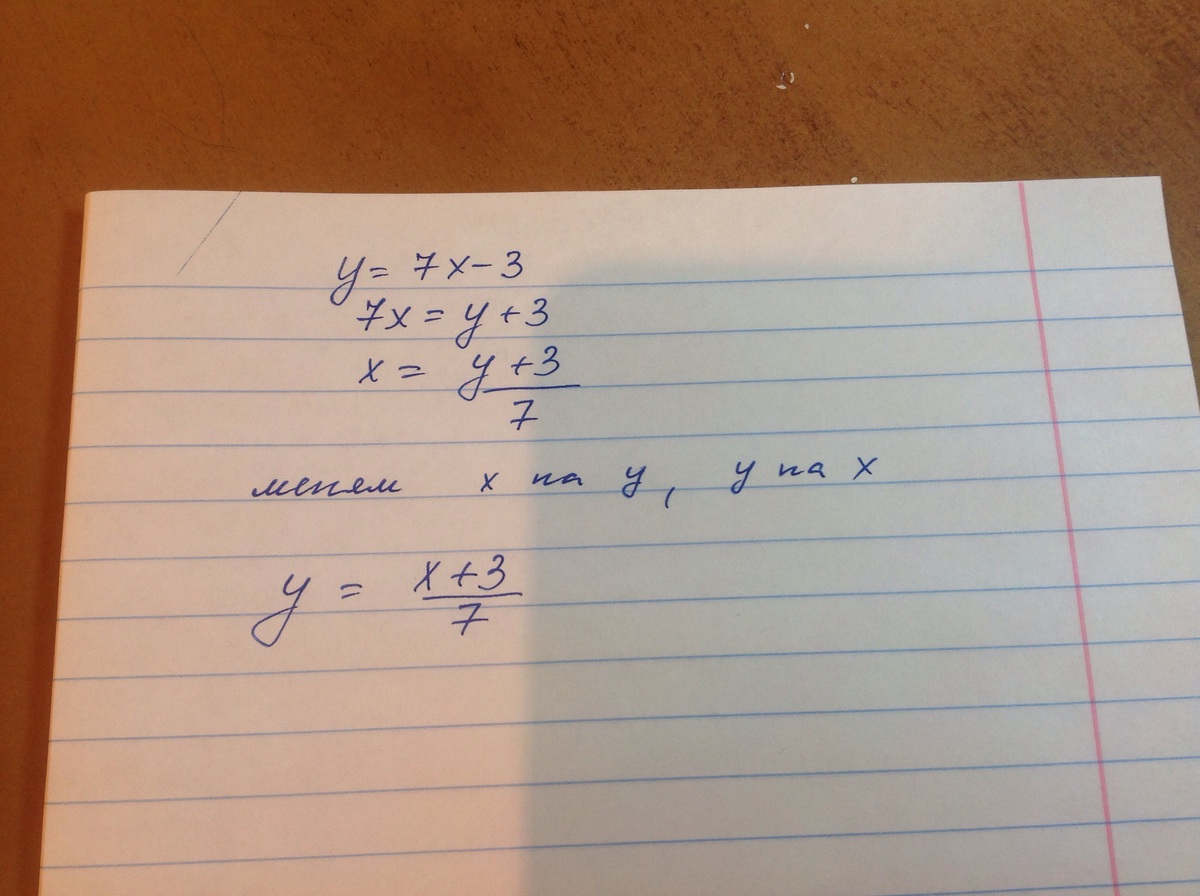 y = 7x - 3
7x = y + 3
x = y + 3
7
меняем x на y, y на x
y = x + 3
7